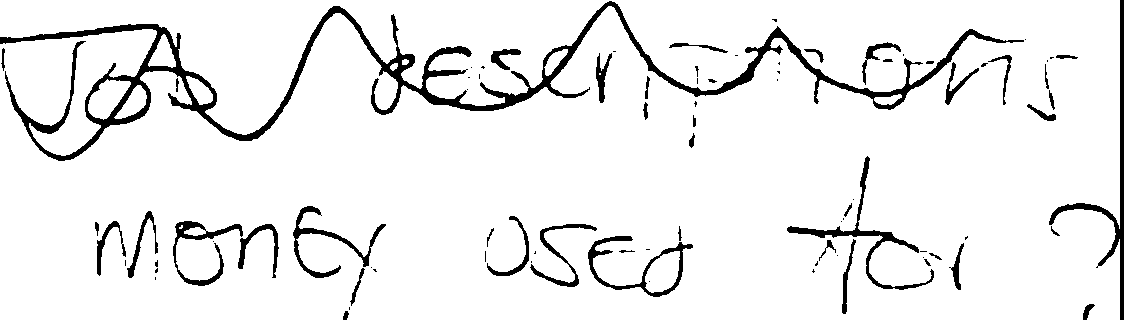 Job descriptions
money used for ?